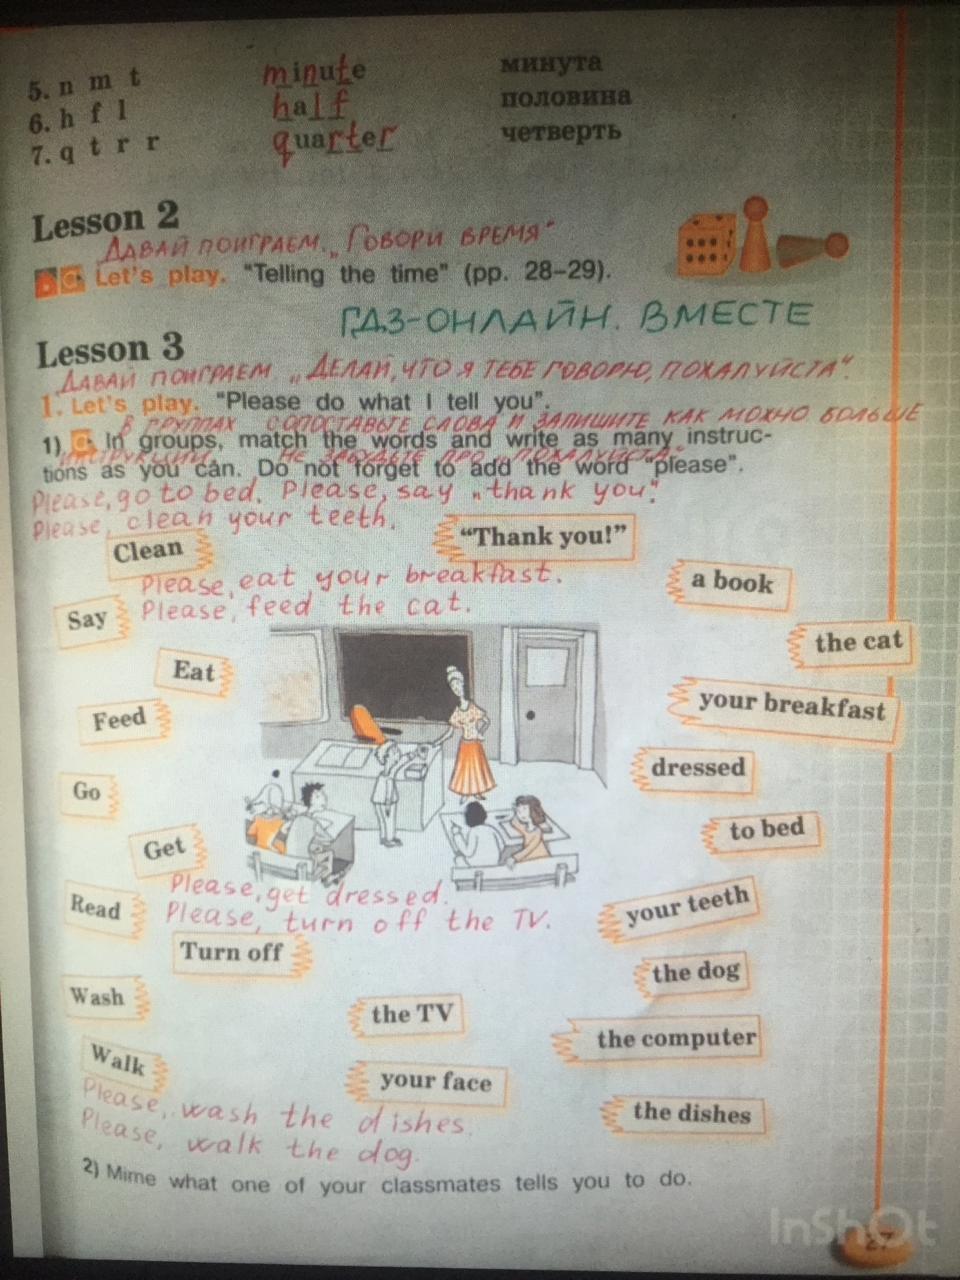 5. n m t minute минута
6. h f l half половина
7. q t r r quarter четверть
Lesson 2
ДАВАЙ ПОИГРАЕМ „ГОВОРИ ВРЕМЯ“
Let's play. “Telling the time” (pp. 28–29).
ГДЗ-ОНЛАЙН. ВМЕСТЕ
Lesson 3
ДАВАЙ ПОИГРАЕМ „ДЕЛАЙ, ЧТО Я ТЕБЕ ГОВОРЮ, ПОЖАЛУЙСТА“.
1. Let's play. “Please do what I tell you”.
В ГРУППАХ СОПОСТАВЬТЕ СЛОВА И ЗАПИШИТЕ КАК МОЖНО БОЛЬШЕ
1) In groups, match the words and write as many instruc-
ИНСТРУКЦИЙ. НЕ ЗАБУДЬТЕ ПРО „ПОЖАЛУЙСТА“.
tions as you can. Do not forget to add the word “please”.
Please, go to bed. Please, say „thank you“.
Please, clean your teeth.
Clean
“Thank you!”
Please, eat your breakfast.
a book
Say
Please, feed the cat.
the cat
Eat
your breakfast
Feed
dressed
Go
to bed
Get
Please, get dressed.
your teeth
Read
Please, turn off the TV.
Turn off
the dog
Wash
the TV
the computer
Walk
your face
the dishes
Please, wash the dishes.
Please, walk the dog.
2) Mime what one of your classmates tells you to do.
InShOt
27